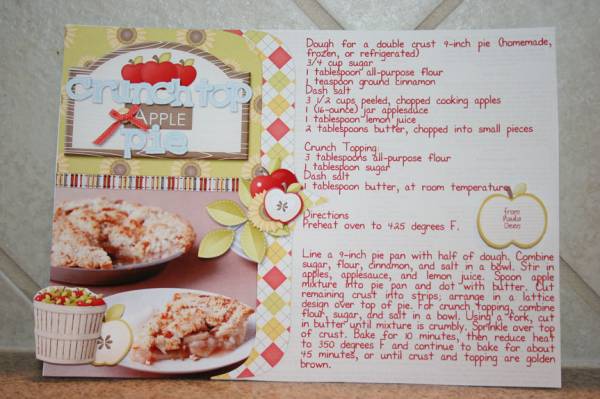 crunch top
APPLE
pie
Dough for a double crust 9-inch pie (homemade,
frozen, or refrigerated)
3/4 cup sugar
1 tablespoon all-purpose flour
1 teaspoon ground cinnamon
Dash salt
3 1/2 cups peeled, chopped cooking apples
1 (16-ounce) jar applesauce
1 tablespoon lemon juice
2 tablespoons butter, chopped into small pieces
Crunch Topping:
3 tablespoons all-purpose flour
1 tablespoon sugar
Dash salt
1 tablespoon butter, at room temperature
from
Paula
Deen
Directions
Preheat oven to 425 degrees F.
Line a 9-inch pie pan with half of dough. Combine
sugar, flour, cinnamon, and salt in a bowl. Stir in
apples, applesauce, and lemon juice. Spoon apple
mixture into pie pan and dot with butter. Cut
remaining crust into strips; arrange in a lattice
design over top of pie. For crunch topping, combine
flour, sugar, and salt in a bowl. Using a fork, cut
in butter until mixture is crumbly. Sprinkle over top
of crust. Bake for 10 minutes, then reduce heat
to 350 degrees F and continue to bake for about
45 minutes, or until crust and topping are golden
brown.